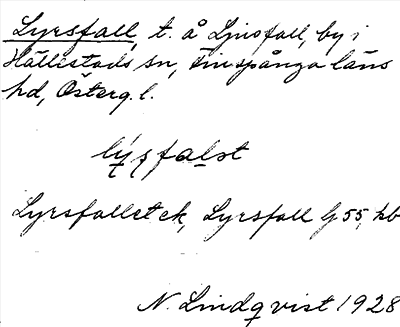 Lyrsfall, t. å Ljusfall, by i
Hällestads sn, Finspånga läns
hd, Österg. l.
lẏsfalət
Lyrsfallet ek, Lyrsfall G 55, kb
N. Lindqvist 1928